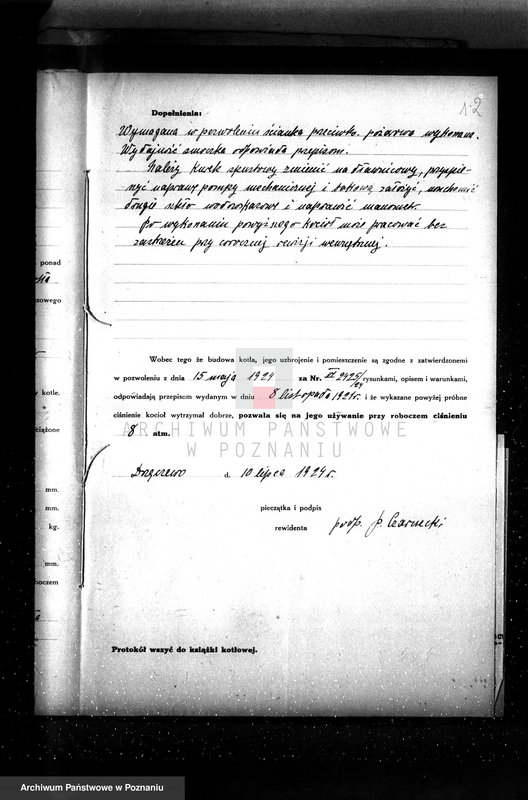 1·2
Dopełnienia:
Wymagana w pozwoleniu ścianka przeciwko wykonana.
Wydajność smoczka odpowiada przepisom.
Należy kurek spustowy zmienić na dławnicowy, przyspie-
szyć naprawę pompy mechanicznej i takową założyć, uruchomić
drugie szkło wodoskazowe i naprawić manometr.
Po wykonaniu powyższego kocioł może pracować bez
zastrzeżeń przy corocznej rewizji wewnętrznej.
ponad
zowego
Wobec tego że budowa kotła, jego uzbrojenie i pomieszczenie są zgodne z zatwierdzonemi
w pozwoleniu z dnia 15 maja 1924 za Nr. 2425/24 rysunkami, opisem i warunkami,
y kotle.
odpowiadają przepisom wydanym w dniu 8 listopada 1921 r. i że wykazane powyżej próbne
ciśnienie kocioł wytrzymał dobrze, pozwala się na jego używanie przy roboczem ciśnieniu
ciążone
8 atm.
ARCHIWUM PAŃSTWOWE
W POZNANIU
d. 10 lipca 1924 r.
mm.
mm.
kg.
pieczątka i podpis
rewidenta
podp. J. Czarnecki
mm.
boczem
Protokół wszyć do książki kotłowej.
Archiwum Państwowe w Poznaniu